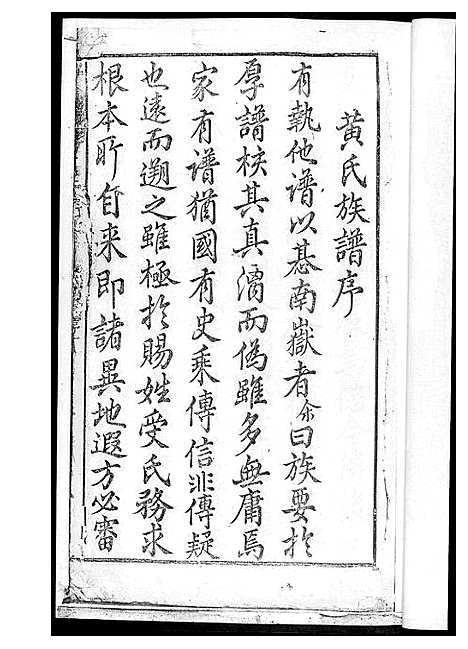 黄氏族譜序
有執他譜以綦南嶽者余曰族要扵
厚譜核其真濟而偽雖多無庸焉
家有譜猶國有史乘傳信非傳疑
也遠而遡之雖極扵賜姓受氏務求
根本所自来即諸異地遐方必審